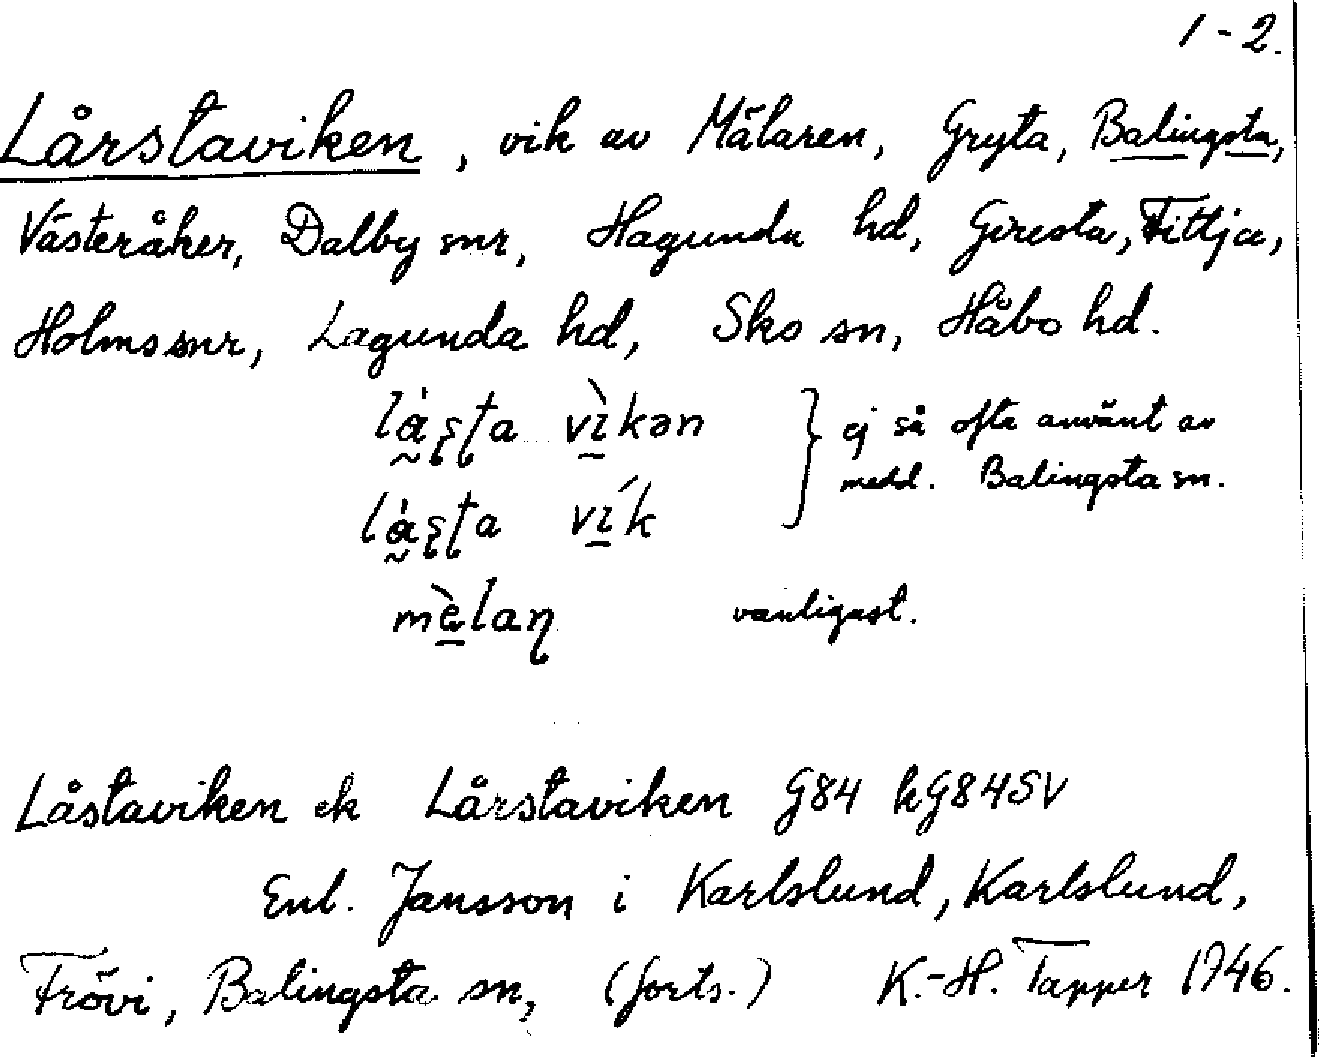 1-2.
Lårstaviken, vik av Mälaren, Gryta, Balingsta,
Västeråker, Dalby snr, Hagunda hd, Giresta, Fittja,
Holms snr, Lagunda hd, Sko sn, Håbo hd.
lá̰ʂʈa vì̠kən } ej så ofta använt av
medd. Balingsta sn.
lá̰ʂʈa ví̠k
mè̠laɳ vanligast.
Låstaviken ek Lårstaviken G84 hG84SV
Enl. Jansson i Karlslund, Karlslund,
Frövi, Balingsta sn, (forts.) K.-H. Tapper 1946.